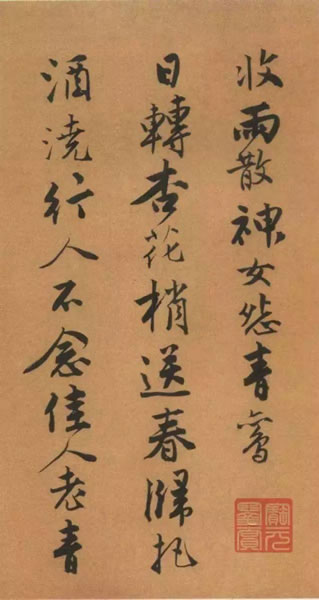 收雨散神女愁青鸞
日轉杏花梢送春歸把
酒澆行人不念佳人老青